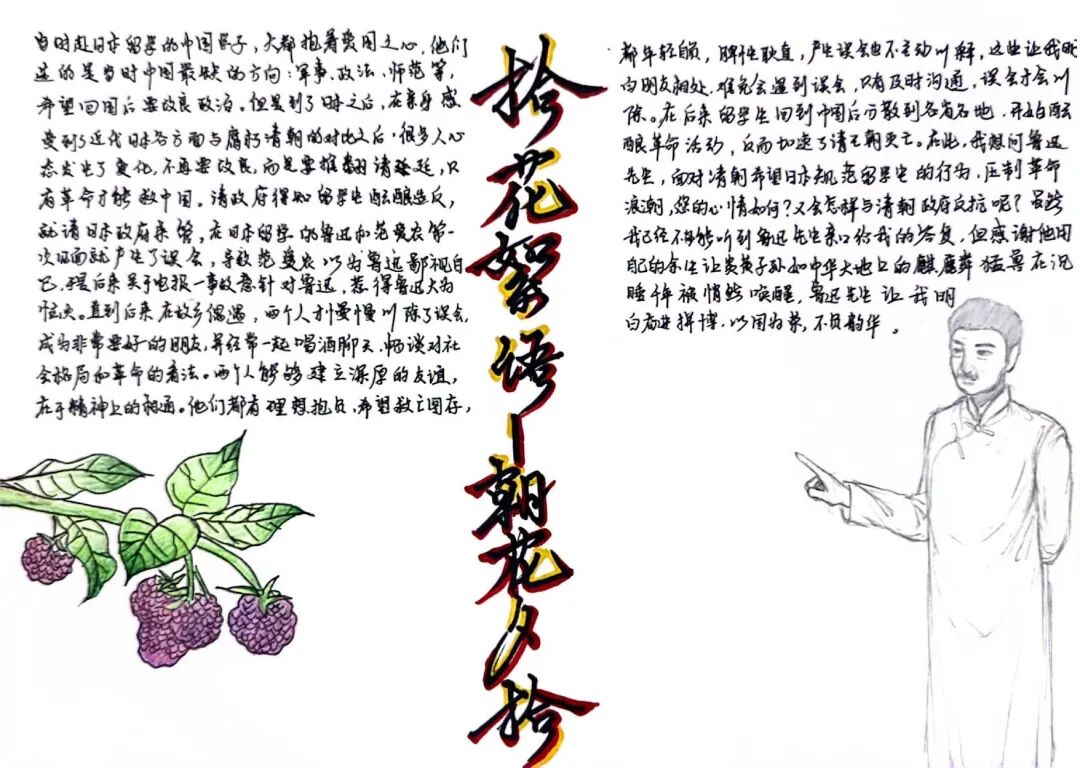 当时赴日本留学的中国学子，大都抱着爱国之心，他们
选的是当时中国最缺的方向：军事、政法、师范等，
希望回国后要改良政治。但是到了日本之后，在亲身感
受到了近代日本各方面与腐朽清朝的对比之后，很多人心
态发生了变化，不再要改良，而是要推翻清廷，只
有革命才能救中国。清政府得知留学生酝酿造反，
就请日本政府来管。在日本留学的鲁迅和范爱农第一
次见面就产生了误会，导致范爱农以为鲁迅鄙视自
己，于是后来关于电报一事故意针对鲁迅，惹得鲁迅大为
恼火。直到后来在故乡偶遇，两个人才慢慢叫除了误会，
成为非常要好的朋友，并经常一起喝酒聊天，畅谈对社
会格局和革命的看法。两个人能够建立深厚的友谊，
在于精神上的相通。他们都有理想抱负，希望救亡图存，
拾花絮语—朝花夕拾
都年轻气，脾性耿直，产生误会也不主动叫释，这些让我明
白朋友相处，难免会遇到误会，只有及时沟通，误会才会叫
除。在后来留学生回到中国后分散到各省各地，开始酝
酿革命活动，反而加速了清王朝灭亡。在此，我想问鲁迅
先生，面对清朝希望日本规范留学生的行为，压制革命
浪潮，您的心情如何？又会怎样与清朝政府反抗呢？虽然
我已经不能听到鲁迅先生亲口给我的答复，但感谢他用
自己的余生让炎黄子孙如中华大地上的麒麟猛兽在沉
睡千年被悄然唤醒，鲁迅先生让我明
白奋进拼博，以国为荣，不负韶华。